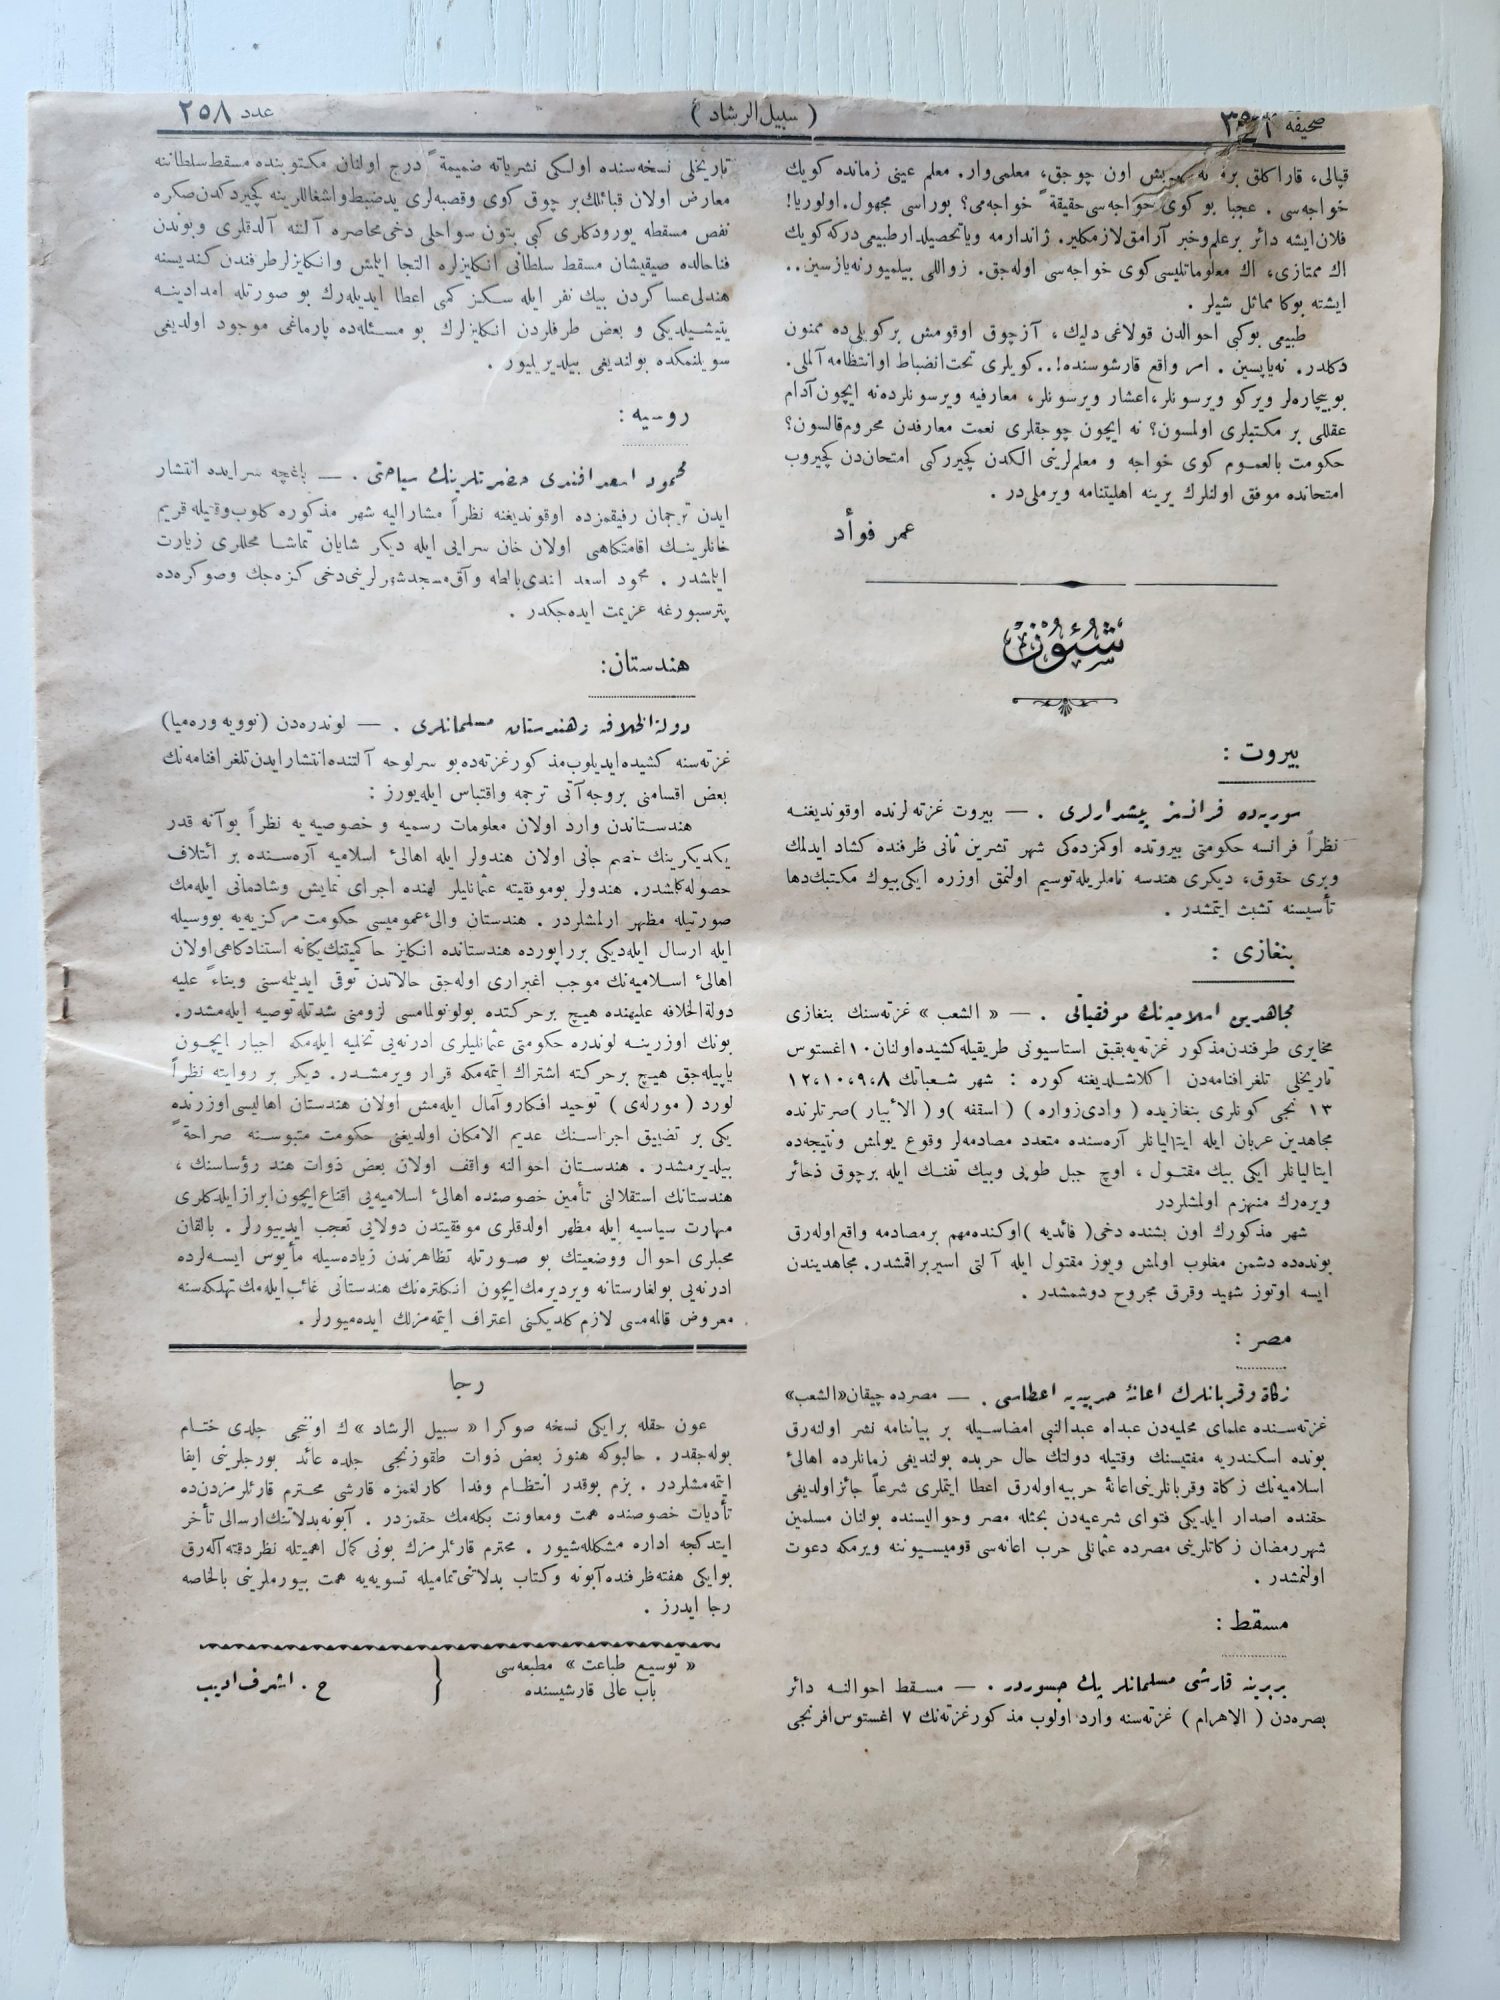 صحیفه
( سبیل الرشاد )
عدد ٢٥٨
خواجه‌سی . عجبا بو کوی خواجه‌سی حقیقةً خواجه‌می؟ بوراسی مجهول. اولوریا!
فلان ایشه دائر بر علم و خبر آرامق لازمکلیر. ژاندارمه و یا تحصیلدار طبیعی درکه کویك
اك ممتازی، اك معلوماتلیسی کوی خواجه‌سی اوله‌جق. زواللی بیلمیور نه‌یازسین..
ایشته بوکا مماثل شیلر .
طبیعی بوکبی احوالدن قولاغی دلیك ، آز چوق اوقومش بر کویلی‌ده ممنون
دکلدر. نه‌یاپسین . امر واقع قارشوسنده!.. کویلری تحت انضباط و انتظامه آلملی.
بو بیچاره‌لر ویرکو ویرسونلر، اعشار ویرسونلر، معارفیه ویرسونلرده نه ایچون آدام
عقللی بر مکتبلری اولمسون؟ نه ایچون چوجقلری نعمت معارفدن محروم قالسون؟
حکومت بالعموم کوی خواجه و معلملرینی الکدن کچیررکبی امتحان‌دن کچیروب
امتحانده موفق اولنلرك یرینه اهلیتنامه ویرملی‌در .
عمر فوأد
شئون
بیروت :
سوریه‌ده فرانسز پیشدارلری . — بیروت غزته‌لرنده اوقوندیغنه
نظراً فرانسه حکومتی بیروتده اوکمزده‌کی شهر تشرین ثانی ظرفنده کشاد ایدلمك
و بری حقوق، دیکری هندسه ناملریله توسیم اولنمق اوزره ایکی بیوك مکتبك دها
تأسیسنه تشبث ایتمشدر .
بنغازی :
مجاهدین اسلامیه‌نك موفقیاتی . — « الشعب » غزته‌سنك بنغازی
مخابری طرفندن مذکور غزته‌یه بقبق استاسیونی طریقیله کشیده اولنان ١٠ اغستوس
تاریخلی تلغرافنامه‌دن اکلاشلدیغنه کوره : شهر شعبانك ٨،٩،١٠،١٢
١٣ نجی کونلری بنغازیده ( وادی زواره ) ( اسقفه ) و ( الأبیار ) صرتلرنده
مجاهدین عربان ایله ایتالیانلر آره‌سنده متعدد مصادمه‌لر وقوع بولمش و نتیجه‌ده
ایتالیانلر ایکی بیك مقتول ، اوچ جبل طوپی و بیك تفنك ایله بر چوق ذخائر
ویره‌رك منهزم اولمشلردر
شهر مذکورك اون بشنده دخی ( فائدیه ) اوکنده مهم بر مصادمه واقع اوله‌رق
بونده‌ده دشمن مغلوب اولمش و یوز مقتول ایله آلتی اسیر براقمشدر. مجاهدیندن
ایسه اوتوز شهید و قرق مجروح دوشمشدر .
مصر :
زکاة و قربانلرك اعانهٔ حربیه‌یه اعطاسی . — مصرده چیقان «الشعب»
غزته‌سنده علمای محلیه‌دن عبداه عبدالنبی امضاسیله بر بیاننامه نشر اولنه‌رق
بونده اسکندریه مفتیسنك وقتیله دولتك حال حربده بولندیغی زمانلرده اهالیٔ
اسلامیه‌نك زکاة و قربانلرینی اعانهٔ حربیه اوله‌رق اعطا ایتملری شرعاً جائز اولدیغی
حقنده اصدار ایلدیکی فتوای شرعیه‌دن بحثله مصر و حوالیسنده بولنان مسلمین
شهر رمضان زکاتلرینی مصرده عثمانلی حرب اعانه‌سی قومیسیوننه ویرمکه دعوت
اولنمشدر .
مسقط :
بربرینه قارشی مسلمانلر پك جسوردر . — مسقط احوالنه دائر
بصره‌دن ( الاهرام ) غزته‌سنه وارد اولوب مذکور غزته‌نك ٧ اغستوس افرنجی
تاریخلی نسخه‌سنده اولکی نشریاته ضمیمةً درج اولنان مکتوبنده مسقط سلطاننه
معارض اولان قبائلك بر چوق کوی و قصبه‌لری ید ضبط و اشغاللرینه کچیردکدن صکره
نفس مسقطه یورودکلری کبی بتون سواحلی دخی محاصره آلتنه آلدقلری و بوندن
فنا حالده صیقیشان مسقط سلطانی انکلیزلره التجا ایلمش و انکلیزلر طرفندن کندیسنه
هندلی عساکردن بیك نفر ایله سکز کمی اعطا ایدیله‌رك بو صورتله امدادینه
یتیشیلدیکی و بعض طرفلردن انکلیزلرك بو مسئله‌ده پارماغی موجود اولدیغی
سویلنمکده بولندیغی بیلدیریلیور .
روسیه :
محمود اسعد افندی حضرتلرینك سیاحتی . — باغچه سرایده انتشار
ایدن ترجمان رفیقمزده اوقوندیغنه نظراً مشارالیه شهر مذکوره کلوب وقتیله قریم
خانلرینك اقامتکاهی اولان خان سرایی ایله دیکر شایان تماشا محللری زیارت
ایلمشدر . محمود اسعد افندی یالطه و آق مسجد شهرلرینی دخی کزه‌جك و صوکره‌ده
پترسبورغه عزیمت ایده‌جکدر .
هندستان:
دولة الخلافه و هندستان مسلمانلری . — لوندره‌دن (نوویه وره‌میا)
غزته‌سنه کشیده ایدیلوب مذکور غزته‌ده بو سرلوحه آلتنده انتشار ایدن تلغرافنامه‌نك
بعض اقسامنی بروجه آتی ترجمه و اقتباس ایله‌یورز :
هندستاندن وارد اولان معلومات رسمیه و خصوصیه یه نظراً بو آنه قدر
یکدیکرینك خصم جانی اولان هندولر ایله اهالیٔ اسلامیه آره‌سنده بر ائتلاف
حصوله کلمشدر. هندولر بو موفقیته عثمانلیلر لهنده اجرای نمایش و شادمانی ایله‌مك
صورتیله مظهر اولمشلردر . هندستان والیٔ عمومیسی حکومت مرکزیه‌یه بو وسیله
ایله ارسال ایله‌دیکی بر راپورده هندستانده انکلیز حاکمیتنك یکانه استنادکاهی اولان
اهالیٔ اسلامیه‌نك موجب اغبراری اوله‌جق حالاتدن توقی ایدیلمه‌سنی و بناءً علیه
دولة الخلافه علیهنده هیچ بر حرکتده بولونولمامسی لزومنی شدتله توصیه ایله‌مشدر.
بونك اوزرینه لوندره حکومتی عثمانلیلری ادرنه‌یی تخلیه ایله‌مکه اجبار ایچون
یاپیله‌جق هیچ بر حرکته اشتراك ایتمه‌مکه قرار ویرمشدر. دیکر بر روایته نظراً
لورد ( مورله‌ی ) توحید افکار و آمال ایله‌مش اولان هندستان اهالیسی اوزرنده
یکی بر تضییق اجراسنك عدیم الامکان اولدیغنی حکومت متبوعه‌سنه صراحةً
بیلدیرمشدر . هندستان احوالنه واقف اولان بعض ذوات هند رؤساسنك ،
هندستانك استقلالنی تأمین خصوصنده اهالیٔ اسلامیه‌یی اقناع ایچون ابراز ایلدکلری
مهارت سیاسیه ایله مظهر اولدقلری موفقیتدن دولایی تعجب ایدییورلر . بالقان
محبلری احوال و وضعیتك بو صورتله تظاهرندن زیاده‌سیله مأیوس ایسه‌لرده
ادرنه‌یی بولغارستانه ویردیرمك ایچون انکلتره‌نك هندستانی غائب ایله‌مك تهلکه‌سنه
معروض قالمه‌مسی لازم کلدیکنی اعتراف ایتمه‌مزلك ایده‌میورلر .
رجا
عون حقله بر ایکی نسخه صوکرا « سبیل الرشاد » ك اوننجی جلدی ختام
بوله‌جقدر . حالبوکه هنوز بعض ذوات طقوزنجی جلده عائد بورجلرینی ایفا
ایتمه‌مشلردر . بزم بوقدر انتظام و فدا کارلغمزه قارشی محترم قارئلرمزدن‌ده
تأدیات خصوصنده همت و معاونت بکله‌مك حقمزدر . آبونه بدلاتنك ارسالی تأخر
ایتدکجه اداره مشکلله‌شیور . محترم قارئلرمزك بونی کمال اهمیتله نظر دقته آله‌رق
بو ایکی هفته ظرفنده آبونه و کتاب بدلاتنی تمامیله تسویه‌یه همت بیورملرینی بالخاصه
رجا ایدرز .
« توسیع طباعت » مطبعه‌سی
باب عالی قارشیسنده
ح . اشرف ادیب